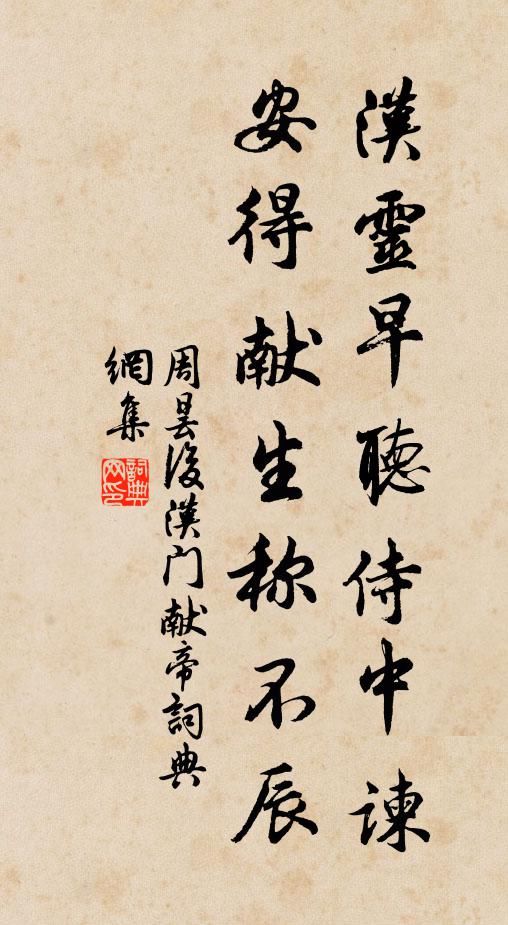 漢靈早聽侍中諫
安得献生称不辰
周昙後漢门献帝詞典
網集
詞典
网印